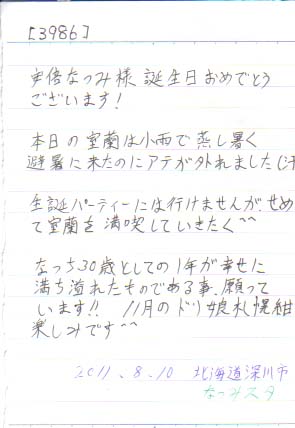 [3986]
安倍なつみ様 誕生日おめでとう
ございます!
本日の室蘭は小雨で蒸し暑く
避暑に来たのにアテが外れました(汗
生誕パーティーには行けませんが、せめ
て室蘭を満喫していきたく^^
なっち30歳としての1年が幸せに
満ち溢れたものである事、願って
います!! 11月のドリ娘札幌紺
楽しみです^^
2011.8.10 北海道深川市
なつみスタ